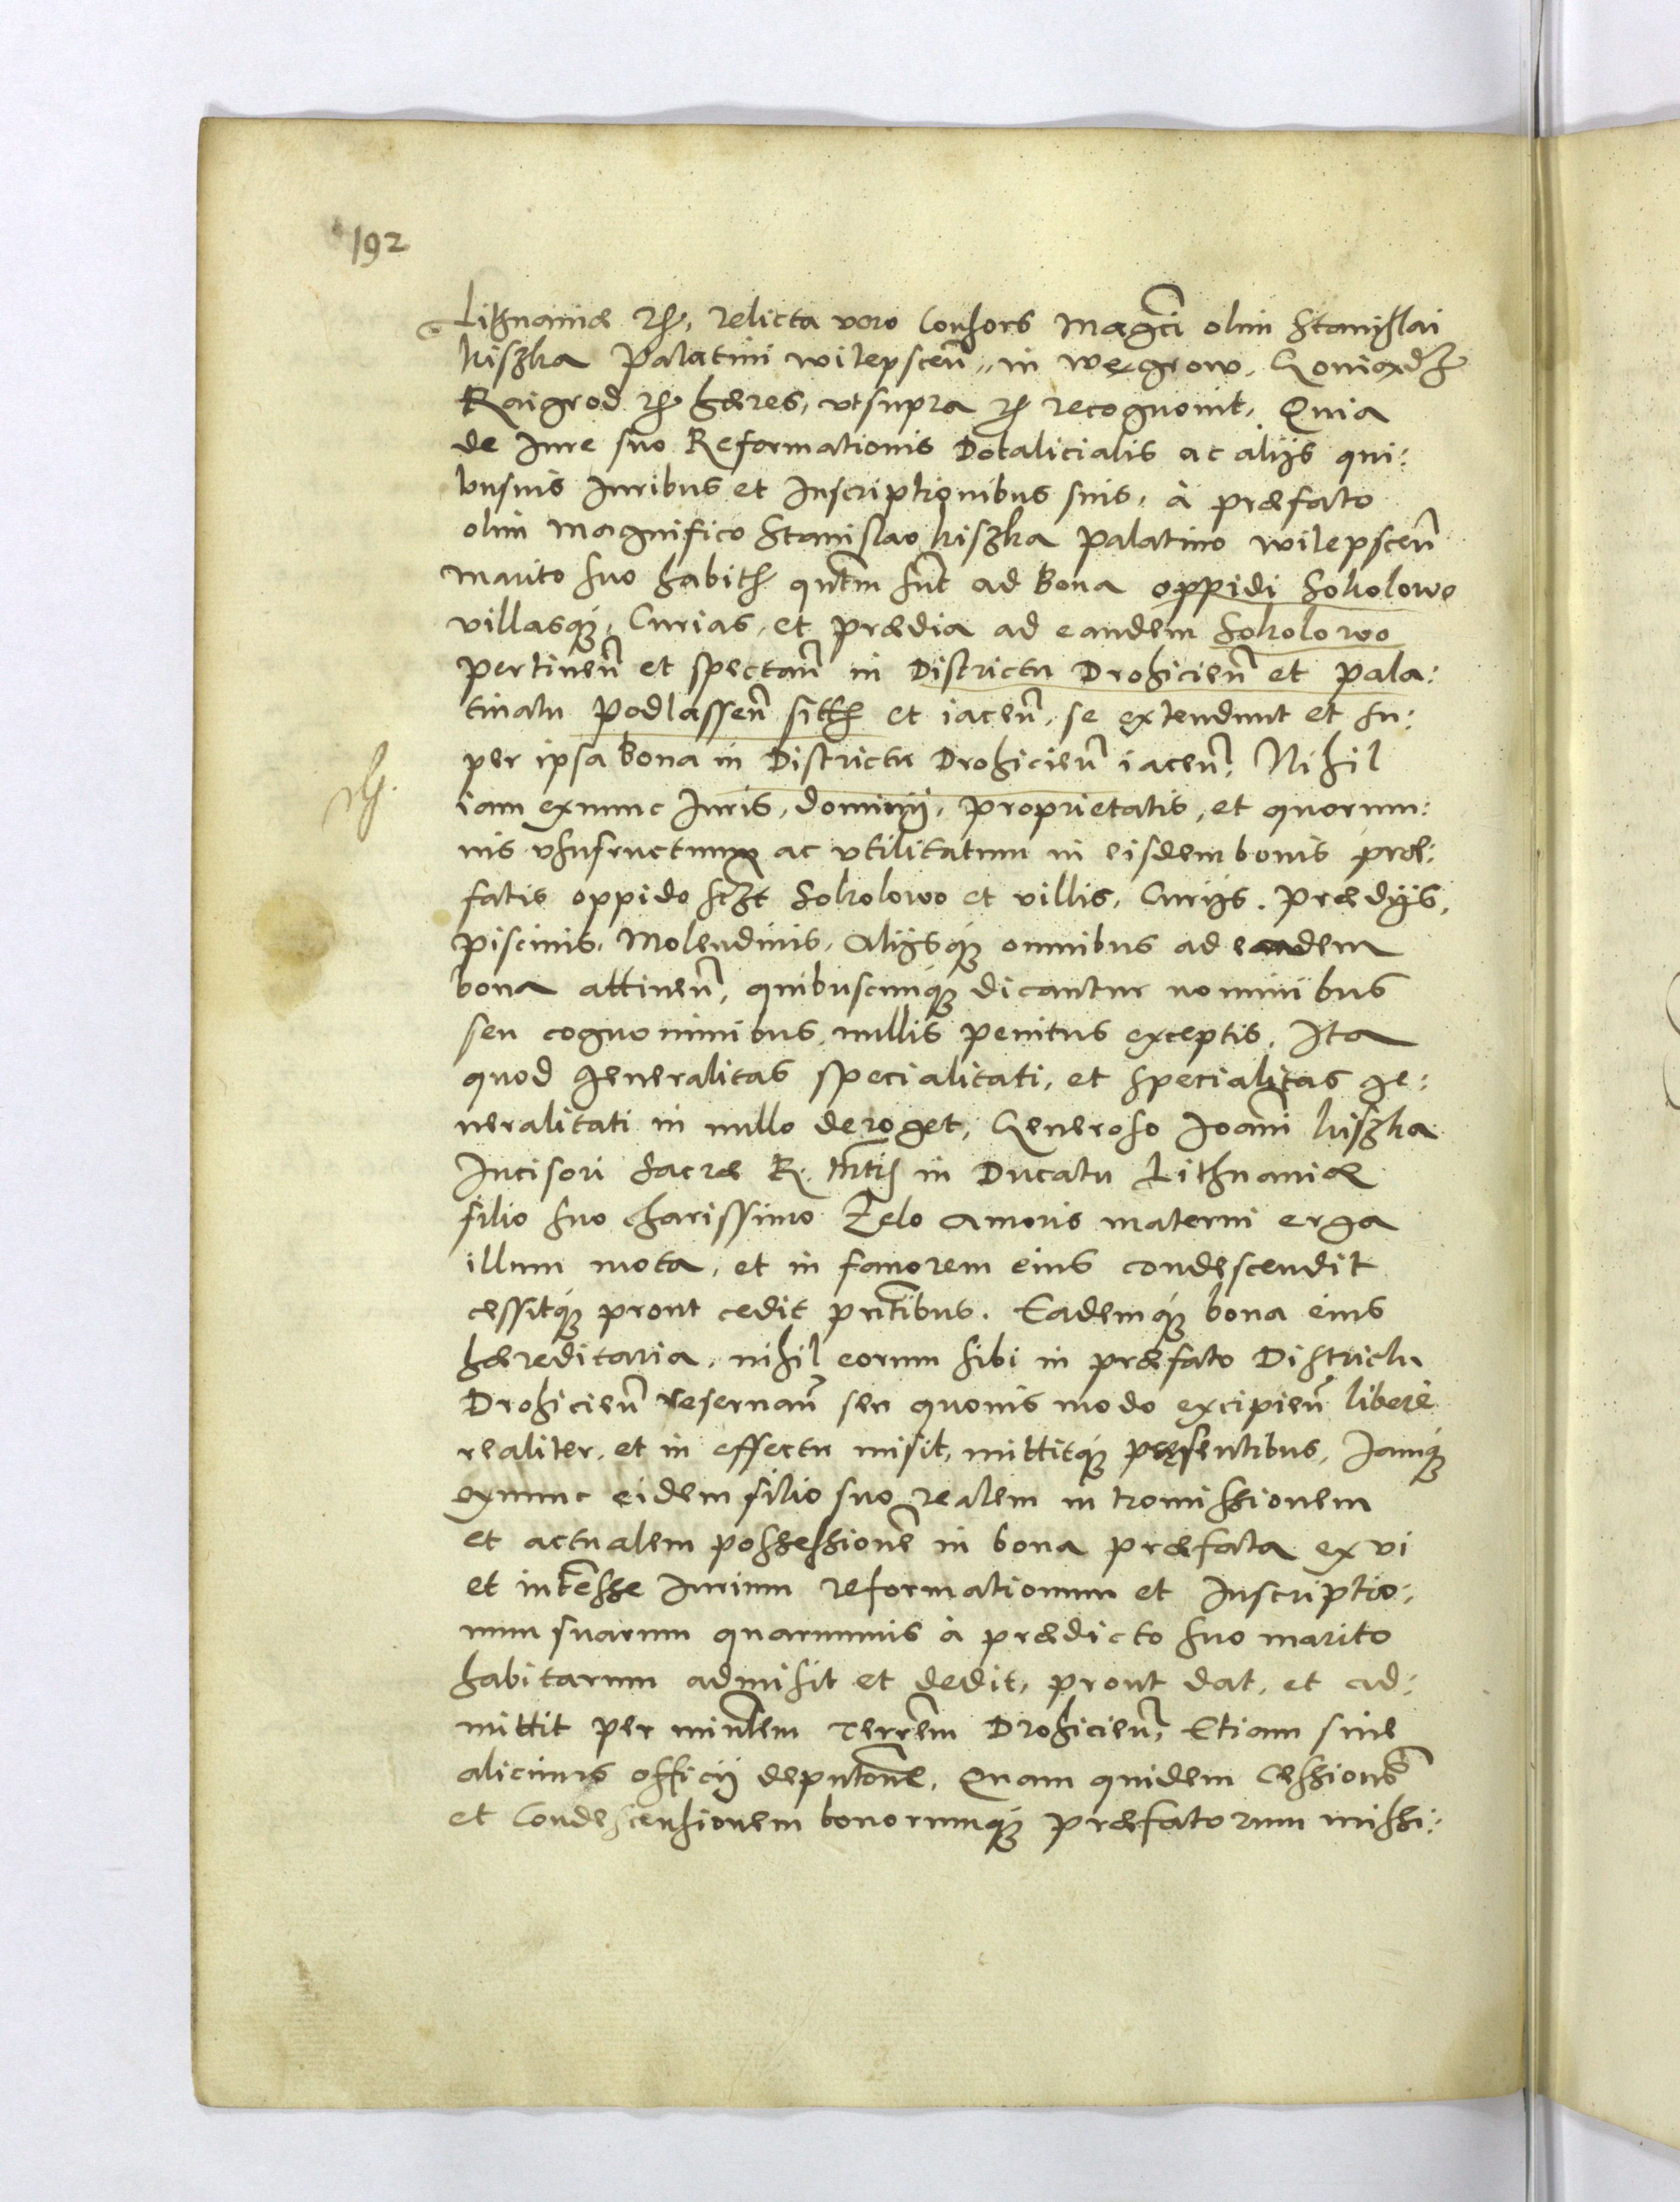 192
Lithuaniæ etc. relicta vero Consors Magci olim Stanislai
Kiszka Palatini Witepscen. in Wegrow, Goniądz
Raigrod etc. hæres, vt supra etc. recognouit, Quia
de Iure suo Reformationis Dotalicialis ac alijs qui:
busuis Iuribus et Inscriptionibus suis, à præfato
olim Magnifico Stanislao Kiszka Palatino Witepscen
marito suo habit. qntm sunt ad bona oppidi Sokolowo
villasq, Curias, et prædia ad eandem Sokolowo
pertinen et spectan in Districtu Drohicien et Pala:
tinatu Podlassen sitt. et iacen, se extendunt et su:
per ipsa bona in Districtu Drohicien iacen, Nihil
iam exnunc Iuris, dominij, proprietatis, et quorum:
uis vsufructuum ac vtilitatum in eisdem bonis præ:
fatis oppido sczt Sokolowo et villis, Curijs, Prædijs,
piscinis, Molendinis, Alijsq omnibus ad eandem
bona attinen, quibuscunq dicantur nominibus
seu cognominibus, nullis penitus exceptis, Ita
quod generalitas specialitati, et specialitas ge:
neralitati in nullo deroget, Generoso Ioanni Kiszka
Incisori Sacræ R. Mtis in Ducatu Lithuaniæ
filio suo charissimo Zelo amoris materni erga
illum mota, et in fauorem eius condescendit
cessitq prout cedit pntibus. Eademq bona eius
hæreditaria, nihil eorum sibi in præfato Districtu
Drohicien reseruan seu quouis modo excipien liberè
realiter, et in effectu misit, mittitq præsentibus, Iamq
exnunc eidem filio suo realem intromissionem
et actualem possessionē in bona præfata ex vi
et intēsse Iurium reformationum et Inscriptio:
num suarum quarumuis à prædicto suo marito
habitarum admisit et dedit, prout dat, et ad:
mittit per mintlem Terrēm Drohicien, Etiam sine
alicuius officij deputone, Quam quidem Cessionē
et Condescensionem bonorumq præfatorum missi: